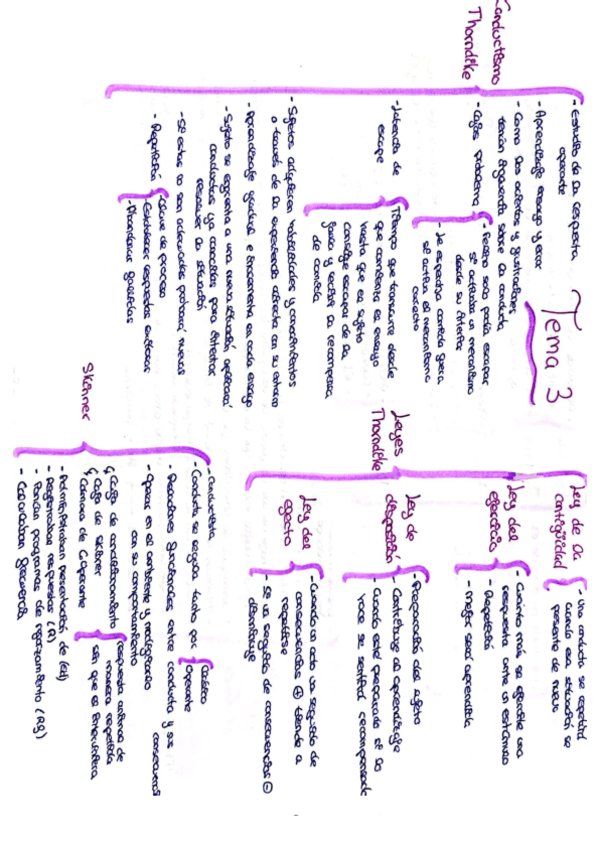 Tema 3
Conductismo
Thorndike
- Estudio de la respuesta
operante
- Aprendizaje ensayo y error
- Como los aciertos y frustraciones
tenían influencia sobre la conducta
- Cajas problema
- Perro solo podía escapar
si activaba un mecanismo
desde su interior
- Se expertiza comida fuera
si activa el mecanismo
correcto
- Latencia de
escape
Tiempo que transcurre desde
que comienza el ensayo
hasta que el sujeto
consigue escapar de la
jaula y recibir la recompensa
de comida
- Sujetos adquieren habilidades y conocimientos
a través de la experiencia directa con su entorno
- Aprendizaje gradual e incrementa en cada ensayo
- Sujeto se enfrenta a una nueva situación aplicará
conductas ya conocidas para intentar
resolver la situación
- Si estas no son adecuadas probará nuevas
- Repetición
- Clave de proceso
- Establecer respuestas
- Abandonar fallidas
Leyes
Thorndike
Ley de la
contigüidad
- Una conducta se repetirá
cuando esa situación se
presente de nuevo
Ley del
ejercicio
- Cuánto más se ejercite una
respuesta ante un estímulo
- Repetición
- Mejor será aprendida
Ley de
disposición
- Preparación del sujeto
- Contribuye al aprendizaje
- Cuando esté preparado si lo
hace se sentirá recompensado
Ley del
efecto
- Cuando un acto va seguido de
consecuencias ⊕ tiende a
repetirse
- Si va seguido de consecuencias ⊖
disminuye
Skinner
- Conductista
- Conducta se regula tanto por
Clásico
Operante
- Relaciones funcionales entre conducta y sus
consecuencias
- Operar en el ambiente y modificando
con su comportamiento
Caja de condicionamiento
Caja de Skinner
Cámara de C. operante
respuesta activa de
manera repetida
sin que él interviniera
- Administraban presentación de (Ed)
- Registraban respuestas (R)
- Ponían programas de reforzamiento (Rf)
- Calculaban frecuencia